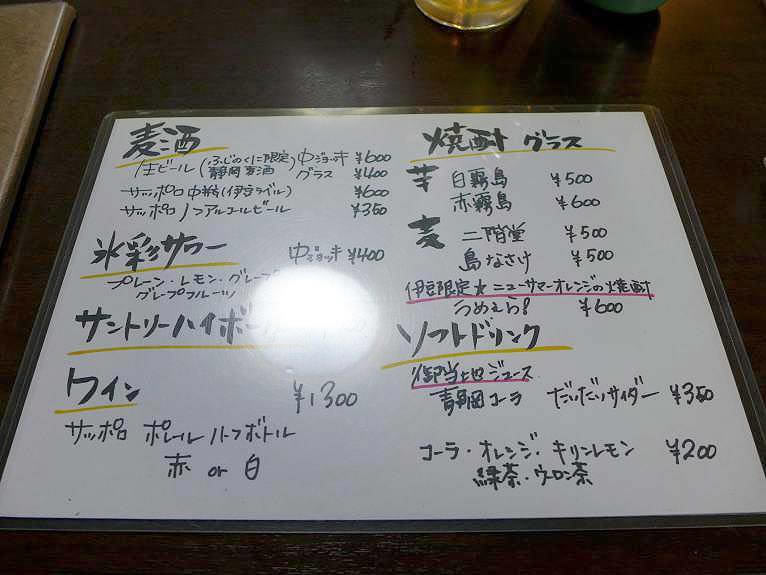 麦酒
生ビール (ふじのくに限定 静岡麦酒) 中ジョッキ ¥600
グラス ¥400
サッポロ中瓶(伊豆ラベル) ¥600
サッポロ ノンアルコールビール ¥350
氷彩サワー 中ジョッキ ¥400
プレーン・レモン・グレープ
グレープフルーツ
サントリーハイボール
ワイン ¥1300
サッポロ ポレール ハーフボトル
赤 or 白
焼酎 グラス
芋 白霧島 ¥500
赤霧島 ¥600
麦 二階堂 ¥500
島なさけ ¥500
伊豆限定★ニューサマーオレンジの焼酎
うめえら! ¥600
ソフトドリンク
御当地ジュース
静岡コーラ だいだいサイダー ¥350
コーラ・オレンジ・キリンレモン ¥200
緑茶・ウーロン茶